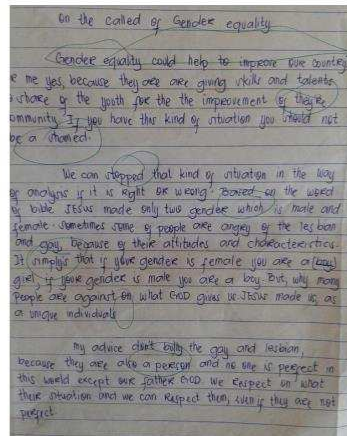 on the called of Gender equality
Gender equality could help to improve our country
me yes, because they are are giving skills and talents
share of the youth for the the improvement of they're
ommunity. If you have this kind of situation you should not
be a shamed.
We can stopped that kind of situation in the way
of analysis if it is right or wrong. Based on the word
of bible Jesus made only two gender which is male and
female. Sometimes some of people are angry of the lesbian
and gay, because of their attitudes and characteristics.
It simply's that if your gender is female you are a (boy)
girl, if your gender is male you are a boy. But, why many
people are against on what GOD gives us Jesus made us, as
a unique individuals
my advice don't bully the gay and lesbian,
because they are also a person and no one is perfect in
this world except our father GOD. We respect on what
their situation and we can respect them, even if they are not
perfect.